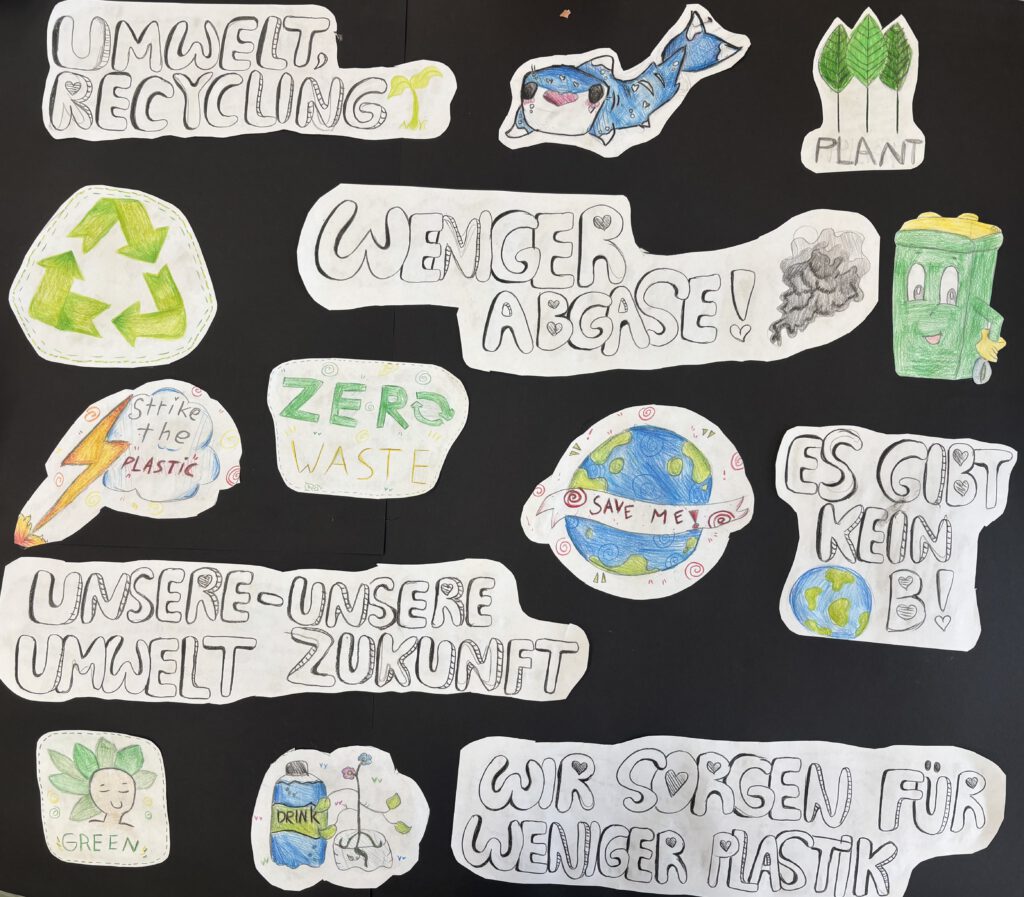 UMWELT,
RECYCLING
PLANT
WENIGER
ABGASE!
Strike
the
PLASTIC
ZERO
WASTE
SAVE ME!
ES GIBT
KEIN
B!
UNSERE-UNSERE
UMWELT ZUKUNFT
GREEN
DRINK
WIR SORGEN FÜR
WENIGER PLASTIK